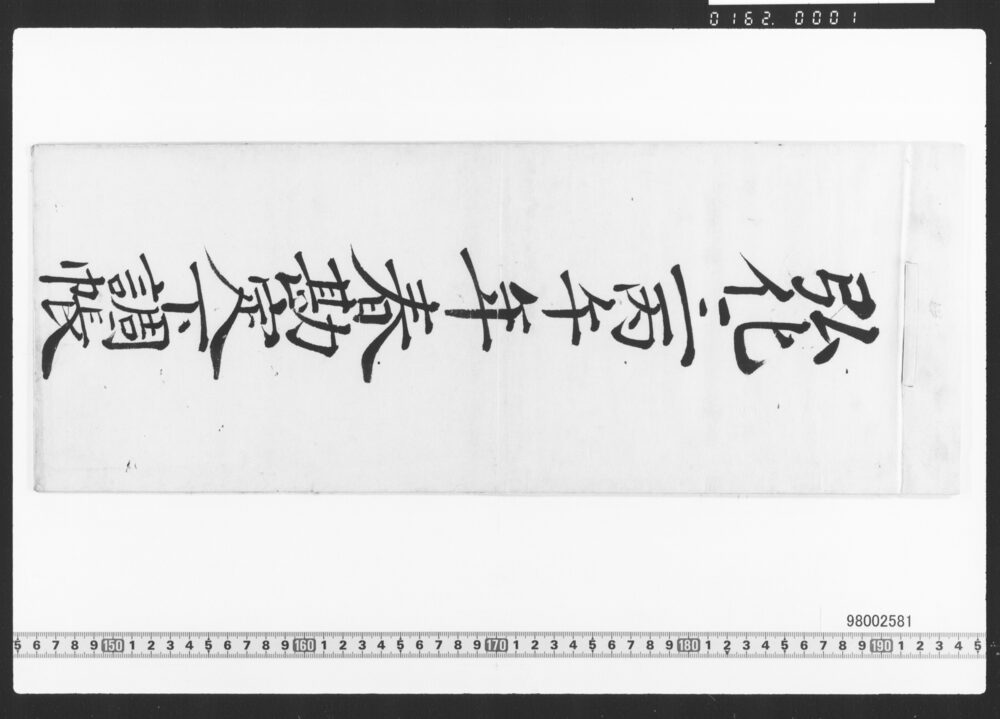 0162. 0001
弘化三丙午年春勘定下調帳
98002581
5 6 7 8 9 150 1 2 3 4 5 6 7 8 9 160 1 2 3 4 5 6 7 8 9 170 1 2 3 4 5 6 7 8 9 180 1 2 3 4 5 6 7 8 9 190 1 2 3 4 5